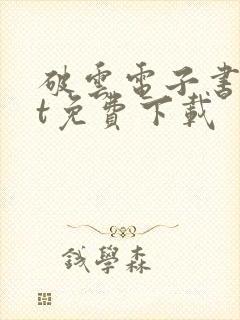 破雲電子書
t免費下載
錢學森